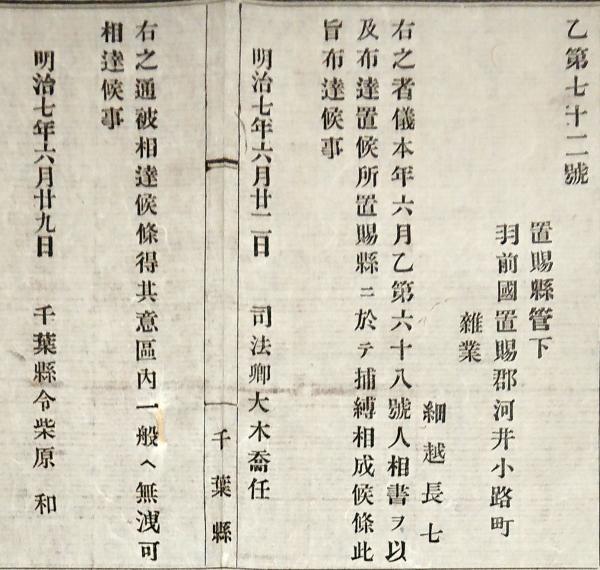 乙第七十二號
置賜縣管下
羽前國置賜郡河井小路町
雜業
細越長七
右之者儀本年六月乙第六十八號人相書ヲ以
及布達置候所置賜縣ニ於テ捕縛相成候條此
旨布達候事
明治七年六月廿二日　司法卿大木喬任
千葉縣
右之通被相達候條得其意區內一般ヘ無洩可
相達候事
明治七年六月廿九日　千葉縣令柴原　和